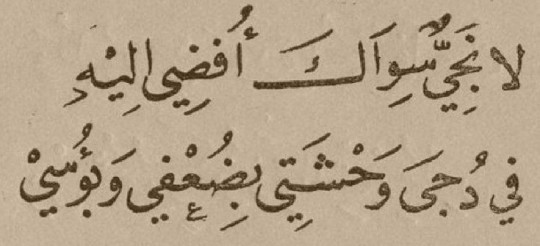 لا نَجِيٌّ سِوَاكَ أُفضِي إِليْهِ
في دُجىَ وَحْشَتِي بِضُعْفِي وَبُؤسِيْ